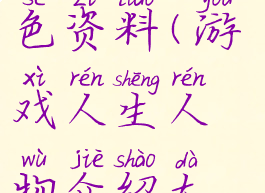 sè zī liào yóu
色资料(游
xì rén shēng rén
戏人生人
wù jiè shào dà
物介绍大